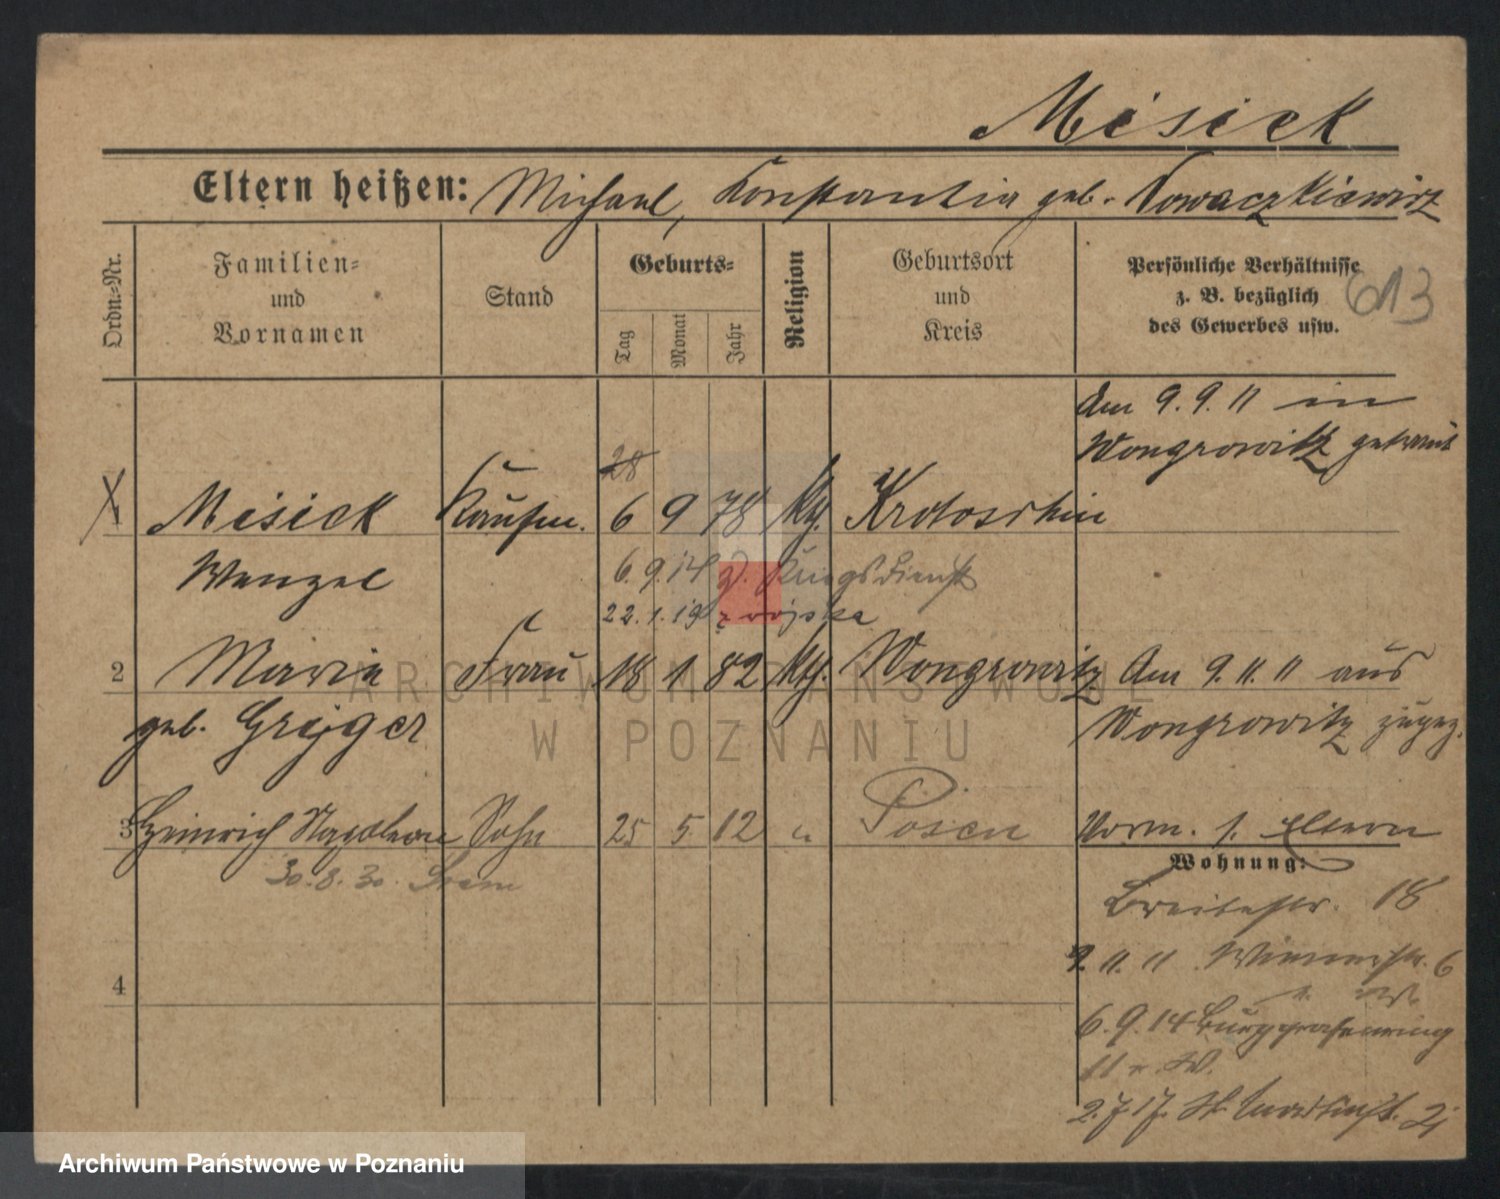 Misiek
Eltern heißen: Michael, Konstantia geb. Nowaczkiewicz
Ordn.-Nr.
Familien-
und
Vornamen
Stand
Geburts-
Tag
Monat
Jahr
Religion
Geburtsort
und
Kreis
Persönliche Verhältnisse
z. B. bezüglich
des Gewerbes usw.
613
Am 9. 9. 11 in
Wongrowitz getraut
28
1 Misiek Kaufm. 6 9 78 kth. Krotoschin
Wenzel 6. 9. 14 z. Kriegsdienst
22. 1. 19 z wojska
2 Maria Frau 18 1 82 kth. Wongrowitz Am 9. 11. 11 aus
geb. Grejger Wongrowitz zugez.
3 Heinrich Sohn 25 5 12 " Posen Vorm. s. Eltern
30. 8. 30. Srem
Wohnung:
Breitestr. 18
9. 11. 11 Wienerstr. 6
6. 9. 14 Burggrafenring
11
2. 7. 17. St. Martinstr.
4
ARCHIWUM PAŃSTWOWE
W POZNANIU
Archiwum Państwowe w Poznaniu